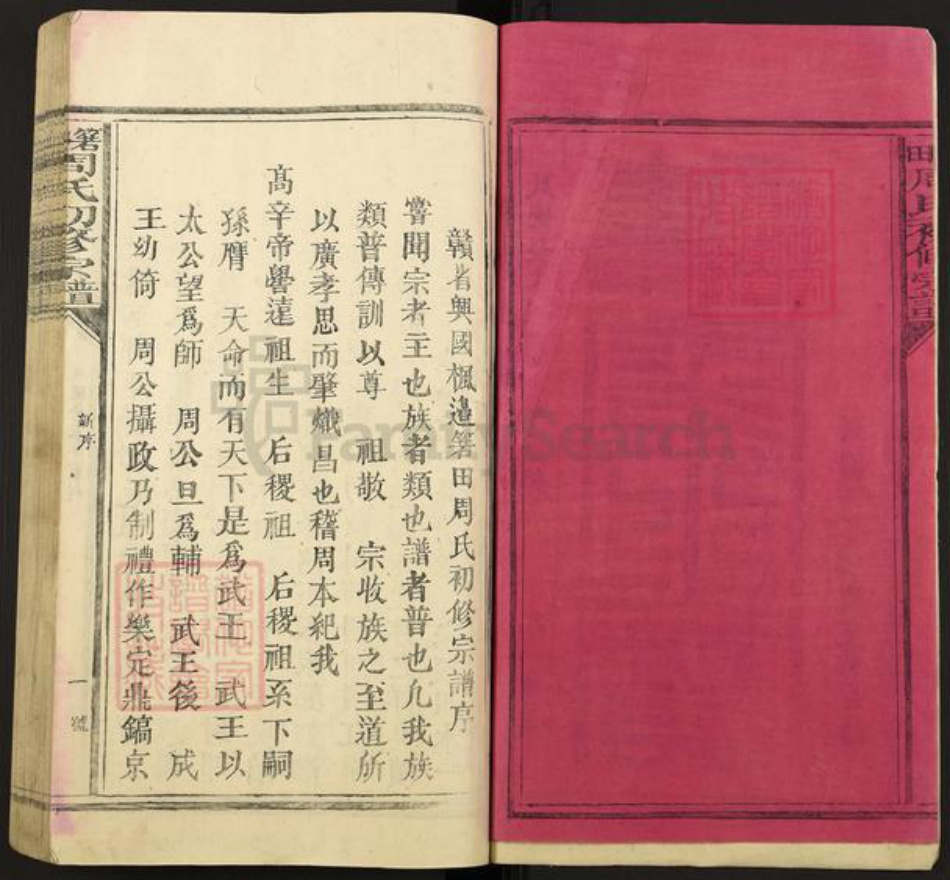 田周氏初修宗譜
贛省興國楓邉箬田周氏初修宗譜序
甞聞宗者主也族者類也譜者普也凢我族
類普傳訓以尊 祖敬 宗收族之至道所
以廣孝思而肇熾昌也稽周本紀我
髙辛帝嚳逺祖生 后稷祖 后稷祖系下嗣
孫膺 天命而有天下是爲武王 武王以
太公望爲師 周公旦爲輔 武王後 成
王幼倚 周公攝政乃制禮作樂定鼎鎬京
箬周氏初修宗譜
新序
一
號
FamilySearch